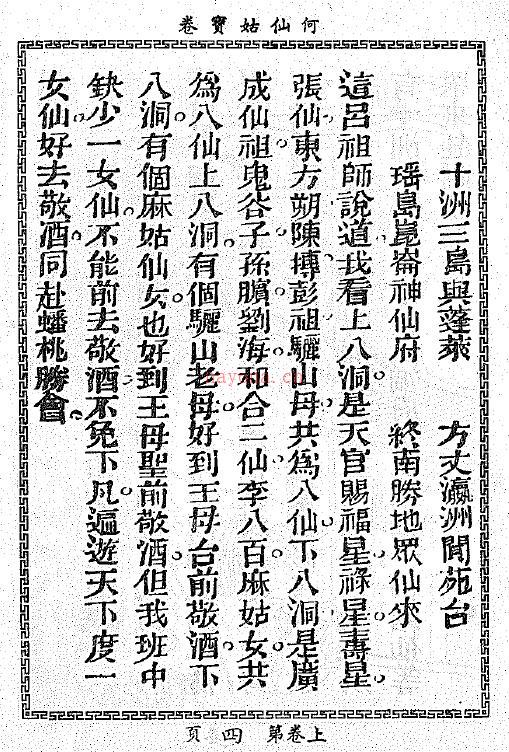 何仙姑寶卷
十洲三島與蓬萊 方丈瀛洲閬苑台
瑤島崑崙神仙府 終南勝地眾仙來
這呂祖師說道我看上八洞是天官賜福星祿星壽星
張仙東方朔陳摶彭祖驪山母共為八仙下八洞是廣
成仙祖鬼谷子孫臏劉海和合二仙李八百麻姑女共
為八仙上八洞有個驪山老母好到王母台前敬酒下
八洞有個麻姑仙女也好到王母聖前敬酒但我班中
缺少一女仙不能前去敬酒不免下凡遍遊天下度一
女仙好去敬酒同赴蟠桃勝會
上卷第四頁